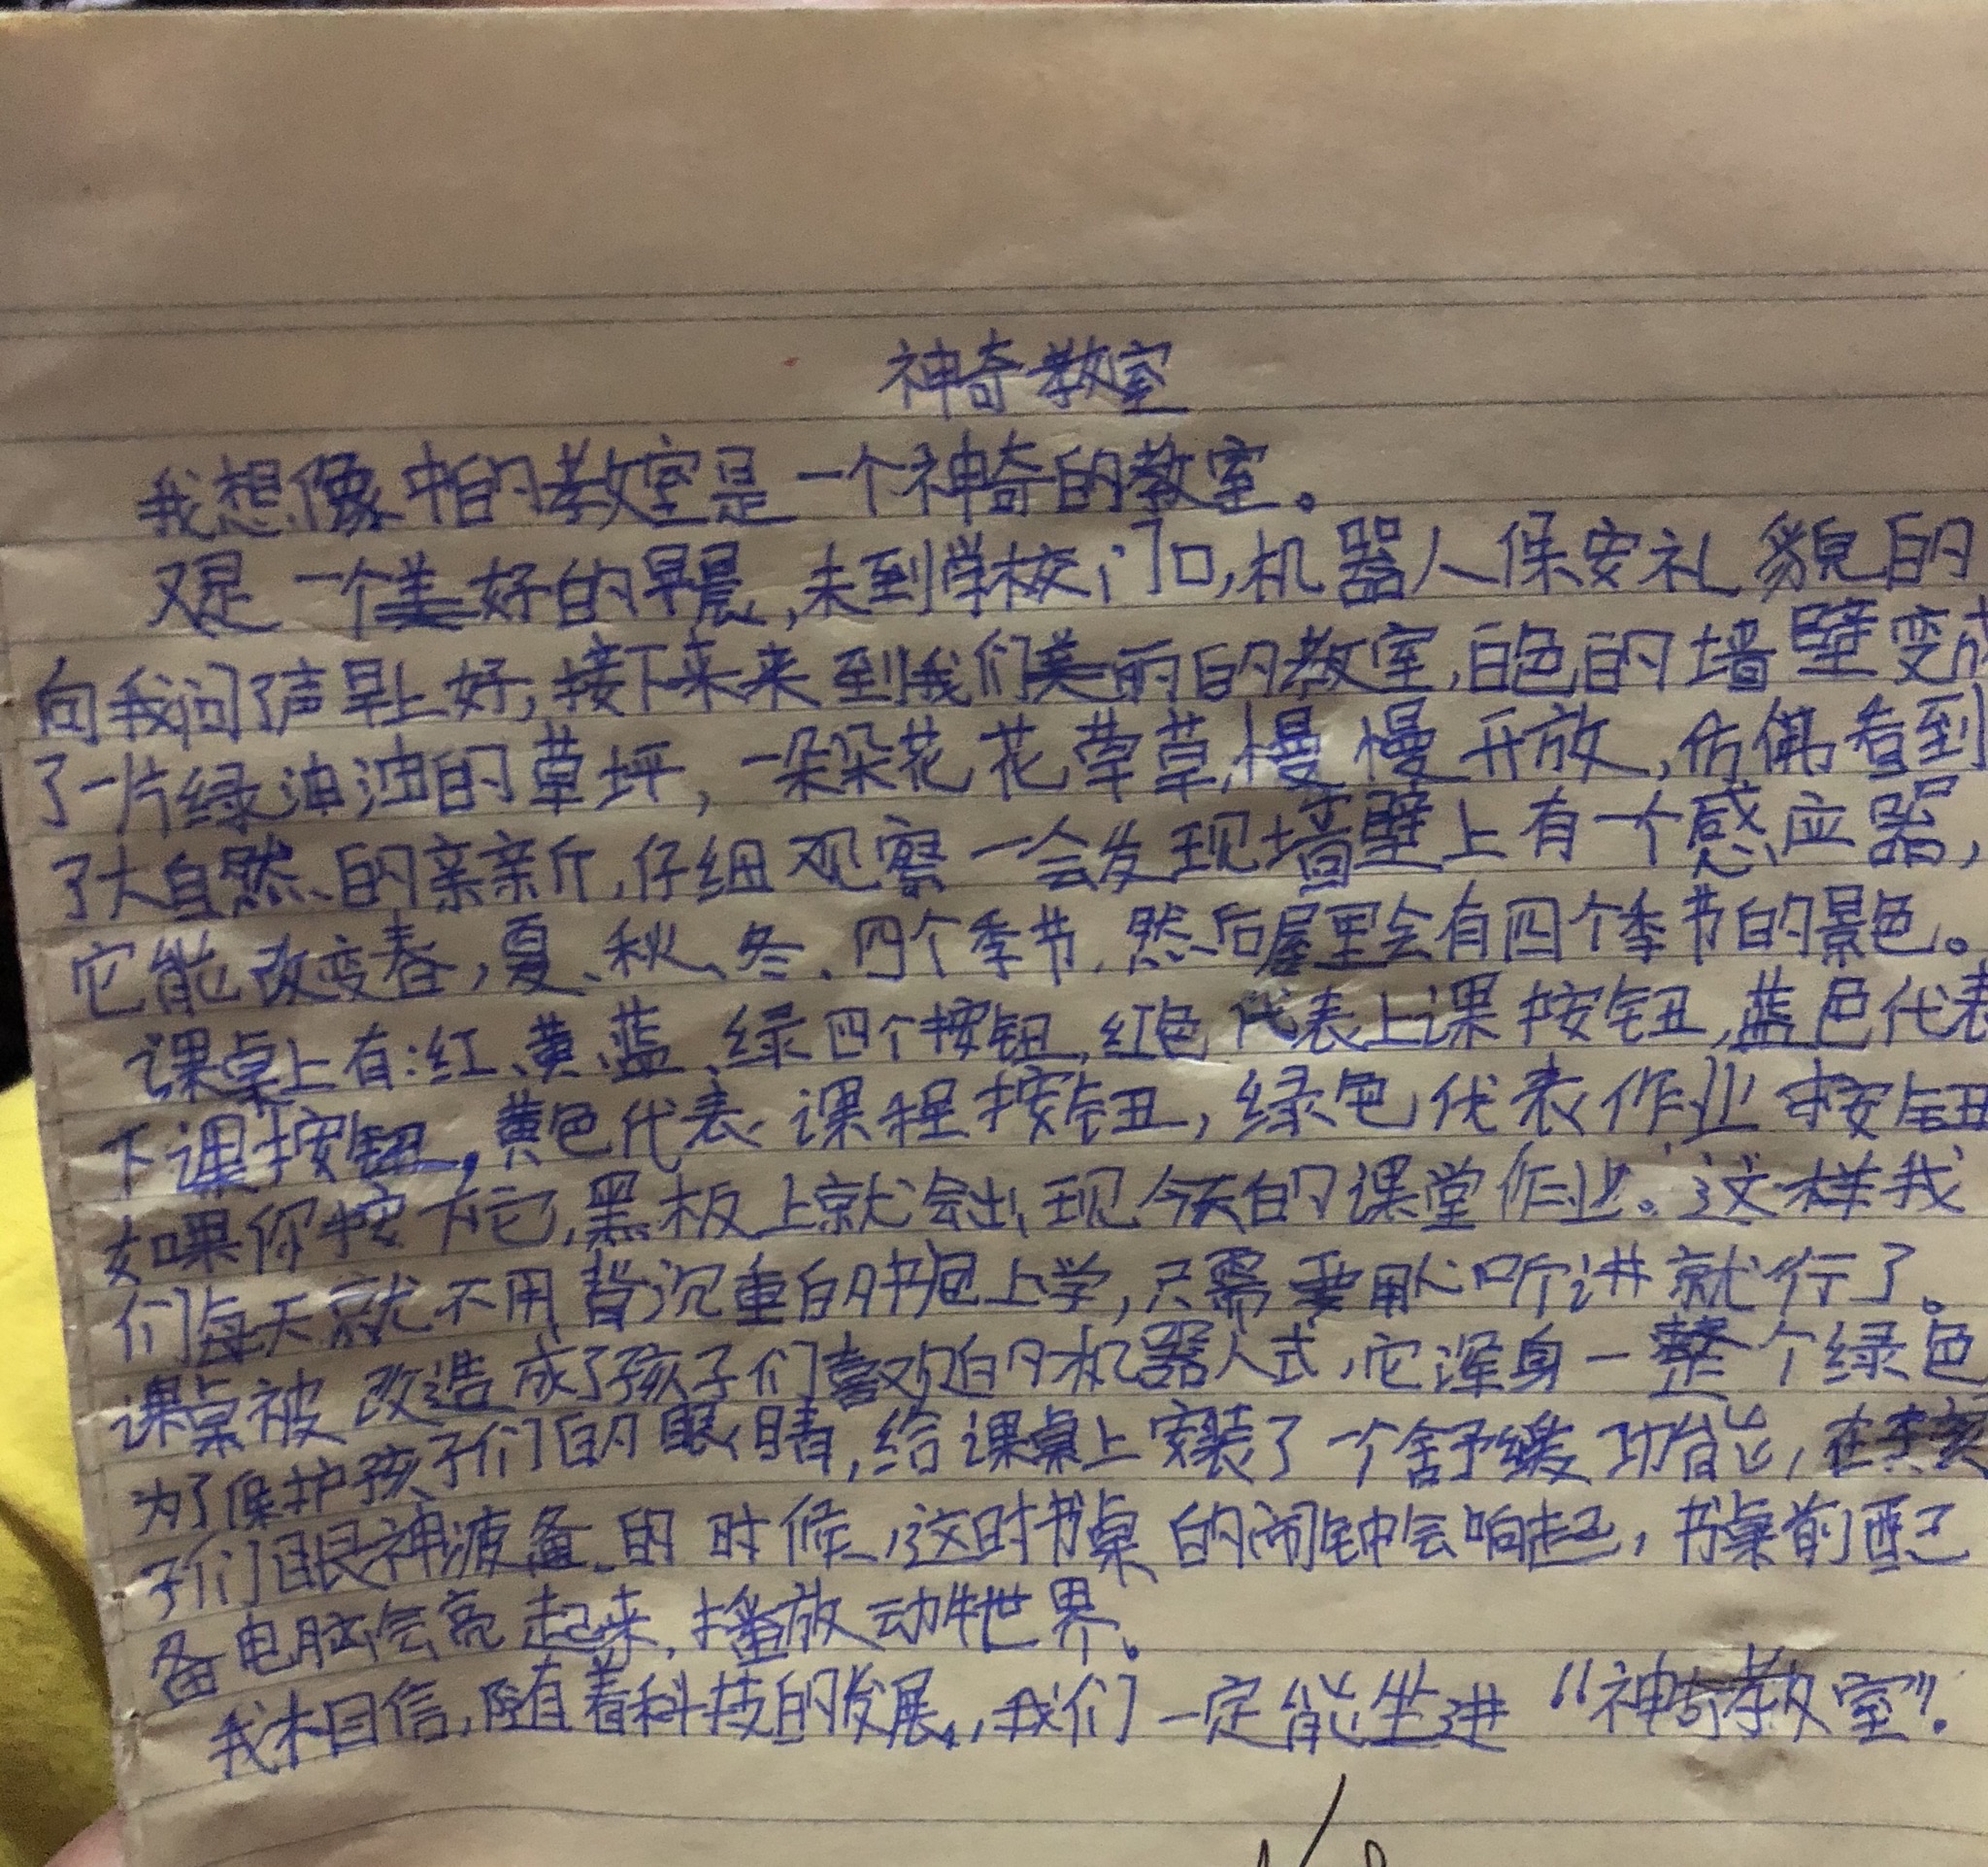 神奇教室
我想像中的教室是一个神奇的教室。
又是一个美好的早晨,来到学校门口,机器人保安礼貌的
向我问了声早上好,接下来来到我们美丽的教室,白色的墙壁变成
了一片绿油油的草坪,一朵朵花花草草慢慢开放,仿佛看到
了大自然的亲亲斤,仔细观察一会发现墙壁上有一个感应器,
它能改变春,夏、秋、冬、四个季节,然后屋里会有四个季节的景色。
课桌上有:红、黄、蓝、绿四个按钮,红色代表上课按钮,蓝色代表
下课按钮,黄色代表课程按钮,绿色代表作业按钮
如果你按下它,黑板上就会出现今天的课堂作业。这样我
们每天就不用背沉重的书包上学,只需要用心听讲就行了。
课桌被改造成了孩子们喜欢的机器人式,它浑身一整个绿色,
为了保护孩子们的眼睛,给课桌上安装了一个舒缓功能,在孩
子们眼神疲备的时候,这时书桌的闹钟会响起,书桌前配
备电脑会亮起来,播放动物世界。
我相信,随着科技的发展,我们一定能坐进“神奇教室”.